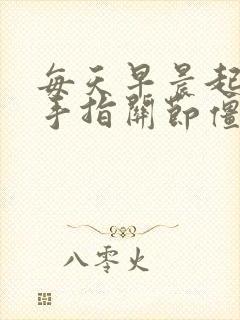 每天早晨起
手指关节僵
八零火